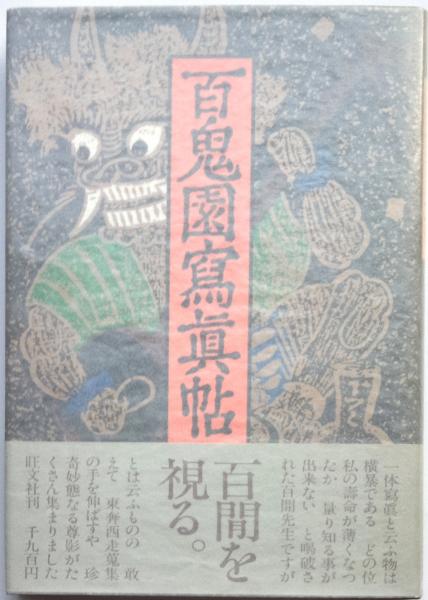 百鬼園寫眞帖
一体寫眞と云ふ物は
横暴である どの位
私の壽命が薄くなつ
たか 量り知る事が
出来ない と喝破さ
れた百閒先生ですが
百閒を
視る。
とは云ふものの 敢
えて 東奔西走蒐集
の手を伸ばすや 珍
奇妙態なる尊影がた
くさん集まりました
旺文社刊 千九百円